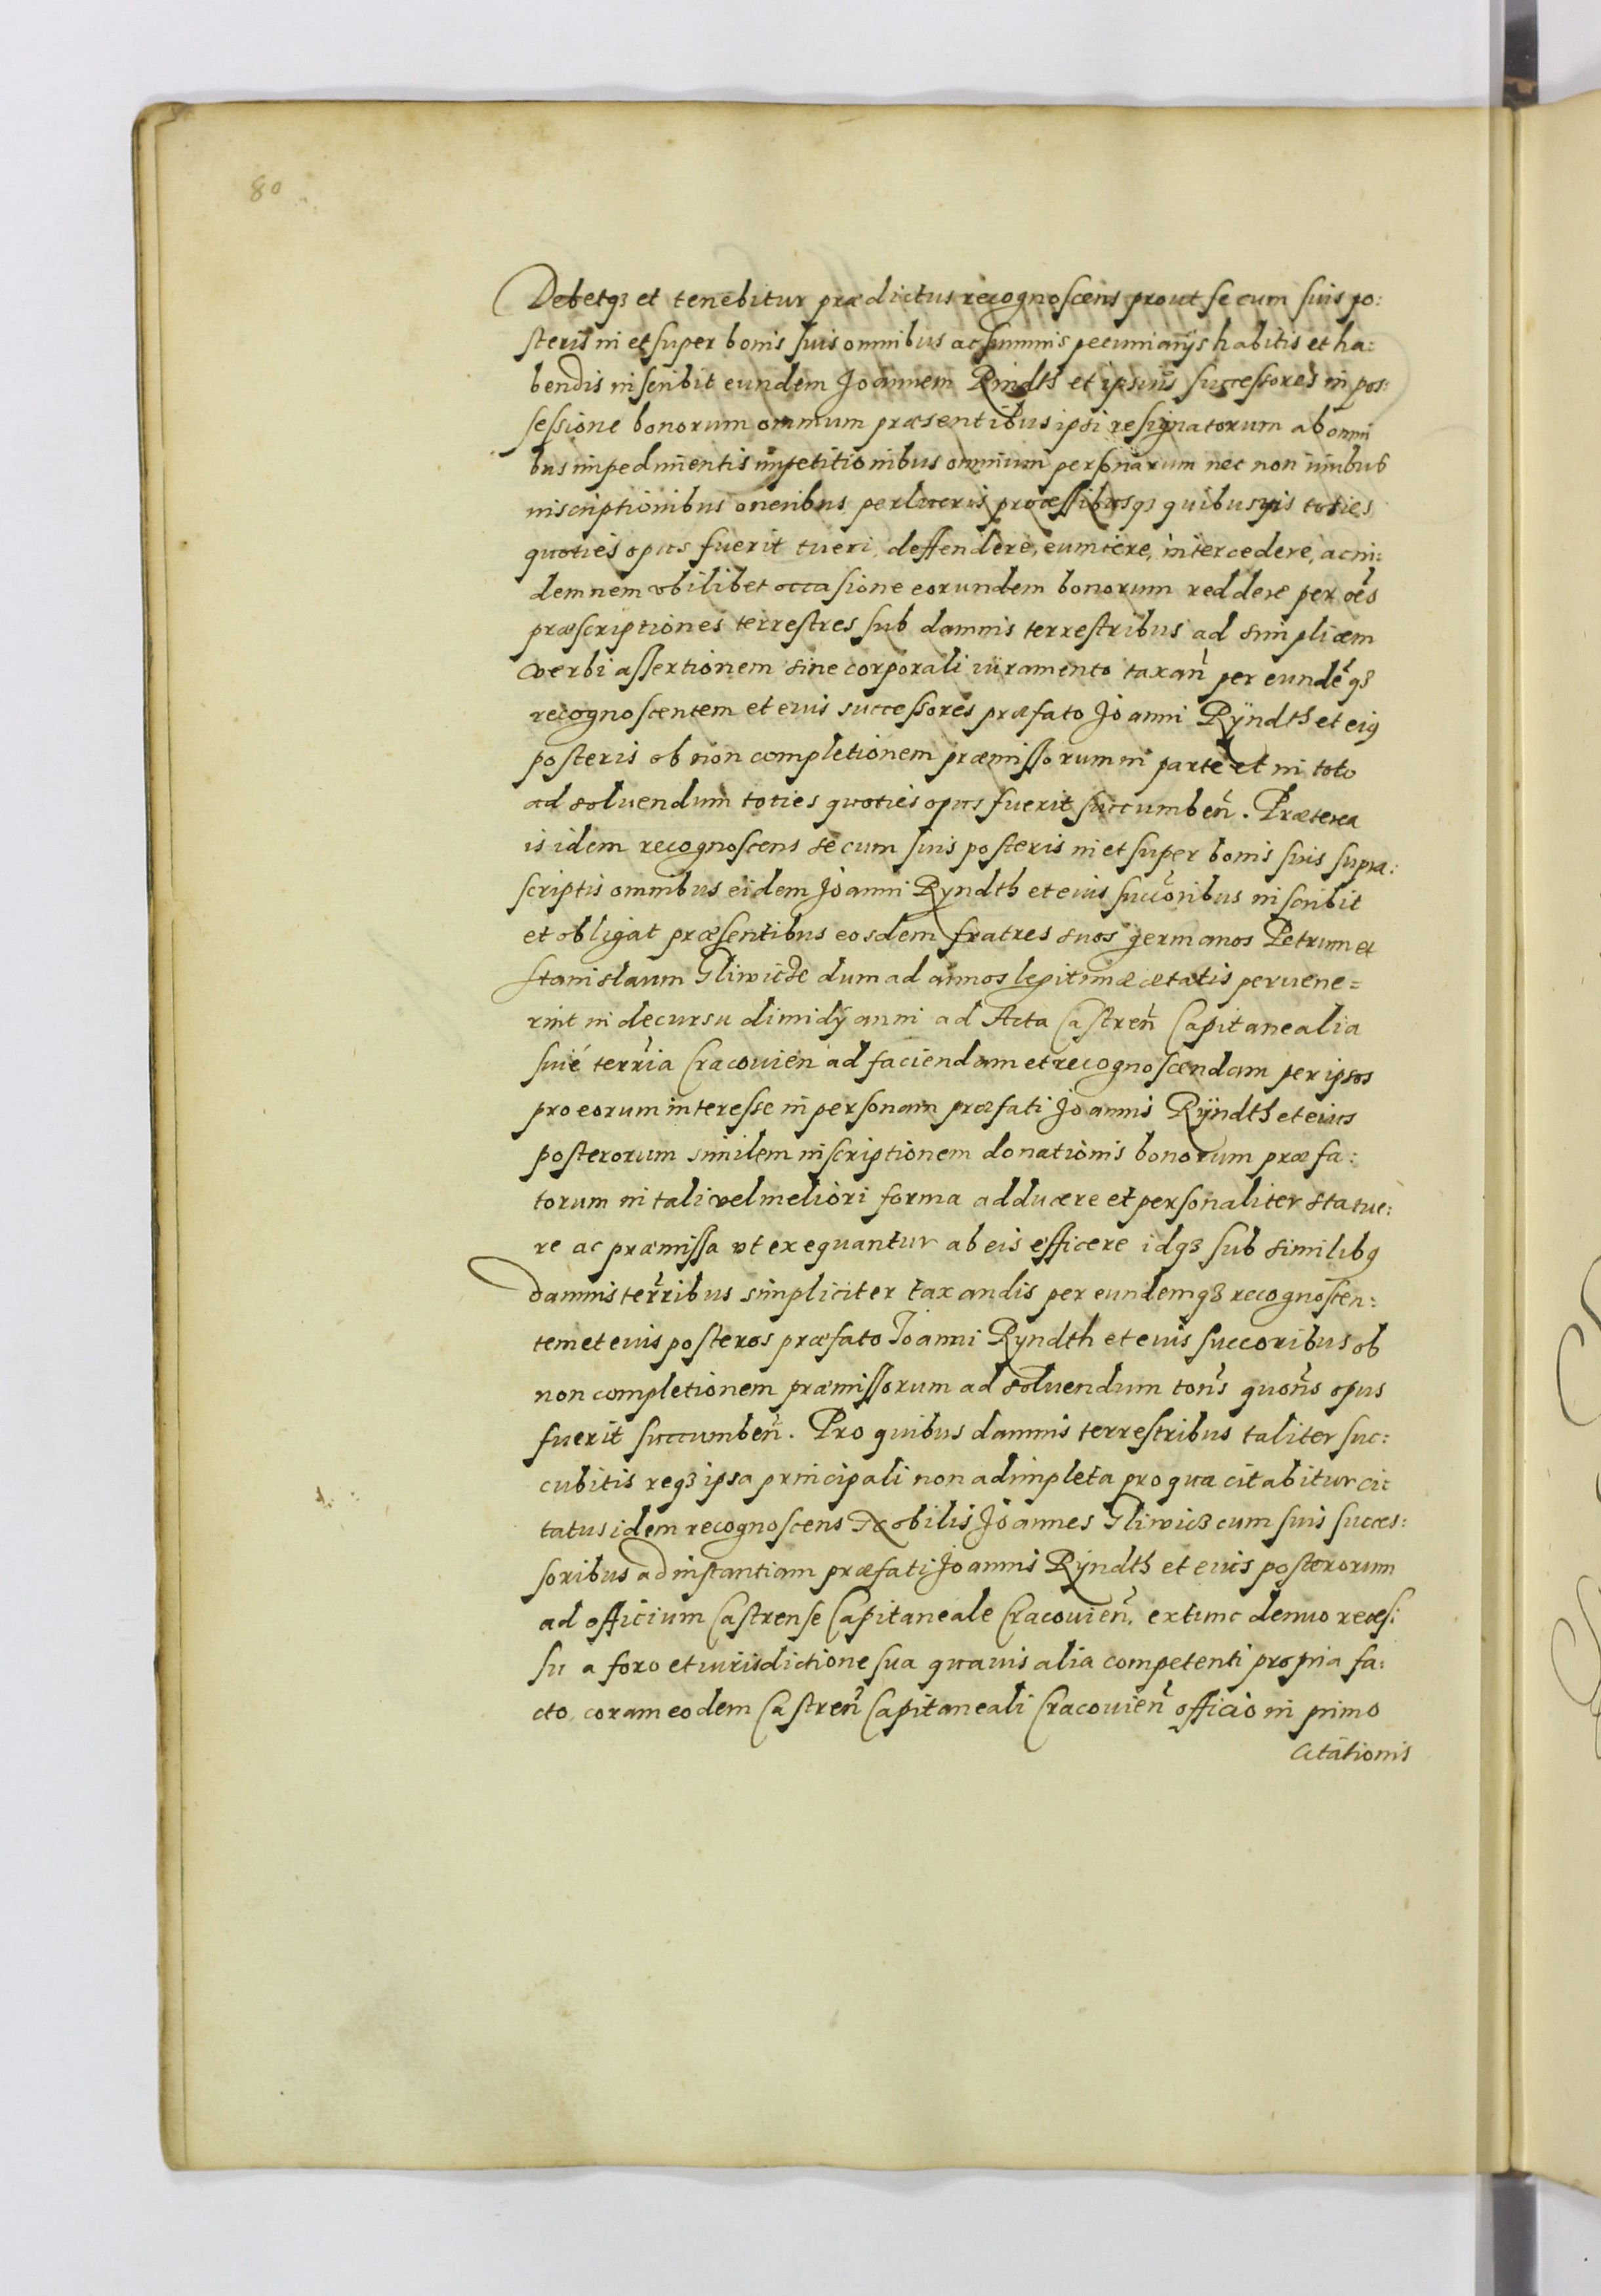 80
Debetqȝ et tenebitur prædictus recognoscens prout se cum suis po:
steris in et super bonis suis omnibus ac summis pecuniarijs habitis et ha:
bendis inscribit eundem Joannem Rindth et ipsius successores in pos:
sessione bonorum omnium præsentibus ipsi resignatorum ab omni
bus impedimentis impetitionibus omnium personarum nec non
inscriptionibus oneribus perlucris processibusqȝ quibusvis toties
quoties opus fuerit tueri, deffendere, evincere, intercedere, ac in:
demnem vbilibet occasione eorundem bonorum reddere per oes
præscriptiones terrestres sub damnis terrestribus ad simplicem
verbi assertionem sine corporali iuramento taxan per eundēqȝ
recognoscentem et eius successores præfato Joanni Rÿndth et eiꝰ
posteris ob non completionem præmissorum in parte et in toto
ad soluendum toties quoties opus fuerit succumben. Præterea
is idem recognoscens se cum suis posteris in et super bonis suis supra:
scriptis omnibus eidem Joanni Ryndth et eius succoribus inscribit
et obligat præsentibus eosdem fratres suos germanos Petrum et
Stanislaum Gliwicze dum ad annos legitimæ ætatis peruene=
rint in decursu dimidÿ anni ad Acta Castren Capitanealia
siue terria Cracouien ad faciendam et recognoscendam per ipsos
pro eorum interesse in personam præfati Joannis Rÿndth et eius
posterorum similem inscriptionem donationis bonorum præfa:
torum in tali vel meliori forma adducere et personaliter statue:
re ac præmissa vt exequantur ab eis efficere idqȝ sub similibꝰ
damnis terribus simpliciter taxandis per eundemqȝ recognoscen:
tem et eius posteros præfato Joanni Ryndth et eius succoribus ob
non completionem præmissorum ad soluendum tons quons opus
fuerit succumben. Pro quibus damnis terrestribus taliter suc:
cubitis reqȝ ipsa principali non adimpleta pro qua citabitur ci:
tatus idem recognoscens Nobilis Joannes Gliwicȝ cum suis succes:
soribus ad instantiam præfati Joannis Rÿndth et eius posterorum
ad officium Castrense Capitaneale Cracouien, extunc denuo reces:
su a foro et iurisdictione sua quauis alia competenti propria fa:
cto, coram eodem Castren Capitaneali Cracouien officio in primo
Citationis